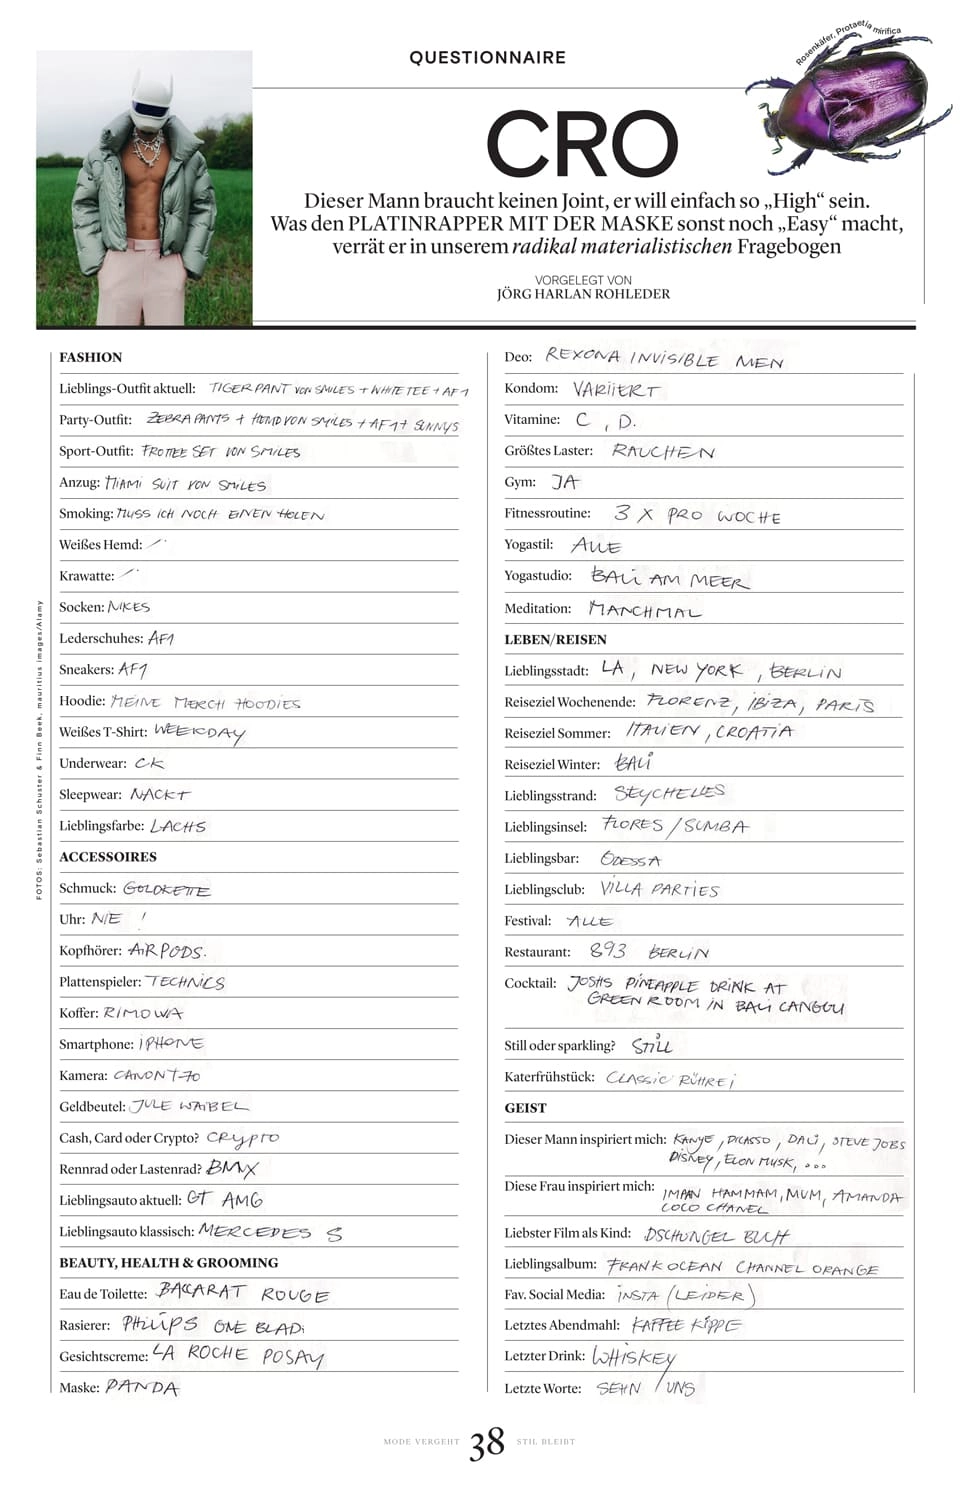 QUESTIONNAIRE
Rosenkäfer, Protaetia mirifica
CRO
Dieser Mann braucht keinen Joint, er will einfach so „High“ sein.
Was den PLATINRAPPER MIT DER MASKE sonst noch „Easy“ macht,
verrät er in unserem radikal materialistischen Fragebogen
VORGELEGT VON
JÖRG HARLAN ROHLEDER
FASHION
Lieblings-Outfit aktuell: TIGERPANT VON SMILES + WHITE TEE + AF1
Party-Outfit: ZEBRAPANTS + HEMD VON SMILES + AF1 + SUNNYS
Sport-Outfit: FROTTEE SET VON SMILES
Anzug: MIAMI SUIT VON SMILES
Smoking: MUSS ICH NOCH EINEN HOLEN
Weißes Hemd: -
Krawatte: -
Socken: NIKES
Lederschuhes: AF1
Sneakers: AF1
Hoodie: MEINE MERCH HOODIES
Weißes T-Shirt: WEEKDAY
Underwear: CK
Sleepwear: NACKT
Lieblingsfarbe: LACHS
ACCESSOIRES
Schmuck: GOLDKETTE
Uhr: NIE !
Kopfhörer: AIRPODS.
Plattenspieler: TECHNICS
Koffer: RIMOWA
Smartphone: IPHONE
Kamera: CANON T70
Geldbeutel: JULE WAIBEL
Cash, Card oder Crypto? CRYPTO
Rennrad oder Lastenrad? BMX
Lieblingsauto aktuell: GT AMG
Lieblingsauto klassisch: MERCEDES S
BEAUTY, HEALTH & GROOMING
Eau de Toilette: BACCARAT ROUGE
Rasierer: PHILIPS ONE BLADE
Gesichtscreme: LA ROCHE POSAY
Maske: PANDA
Deo: REXONA INVISIBLE MEN
Kondom: VARIIERT
Vitamine: C, D.
Größtes Laster: RAUCHEN
Gym: JA
Fitnessroutine: 3 X PRO WOCHE
Yogastil: ALLE
Yogastudio: BALI AM MEER
Meditation: MANCHMAL
LEBEN/REISEN
Lieblingsstadt: LA, NEW YORK, BERLIN
Reiseziel Wochenende: FLORENZ, IBIZA, PARIS
Reiseziel Sommer: ITALIEN, CROATIA
Reiseziel Winter: BALI
Lieblingsstrand: SEYCHELLES
Lieblingsinsel: FLORES / SUMBA
Lieblingsbar: ODESSA
Lieblingsclub: VILLA PARTIES
Festival: ALLE
Restaurant: 893 BERLIN
Cocktail: JOSHS PINEAPPLE DRINK AT
GREEN ROOM IN BALI CANGGU
Still oder sparkling? STILL
Katerfrühstück: CLASSIC RÜHREI
GEIST
Dieser Mann inspiriert mich: KANYE, PICASSO, DALI, STEVE JOBS
DISNEY, ELON MUSK, ...
Diese Frau inspiriert mich: IMAN HAMMAM, MUM, AMANDA
COCO CHANEL
Liebster Film als Kind: DSCHUNGEL BUCH
Lieblingsalbum: FRANK OCEAN CHANNEL ORANGE
Fav. Social Media: INSTA (LEIDER)
Letztes Abendmahl: KAFFEE KIPPE
Letzter Drink: WHISKEY
Letzte Worte: SEHN UNS
FOTOS: Sebastian Schuster & Finn Beek, mauritius images/Alamy
MODE VERGEHT 38 STIL BLEIBT